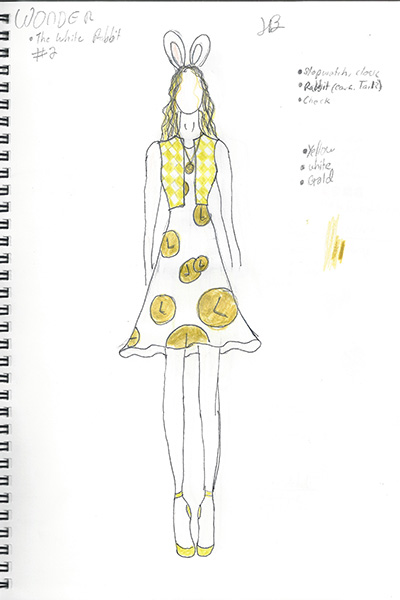 WONDER
• The White Rabbit
#2
JB
• Stopwatch, clock
• Rabbit (ears, Tails)
• Check
• Yellow
• white
• Gold